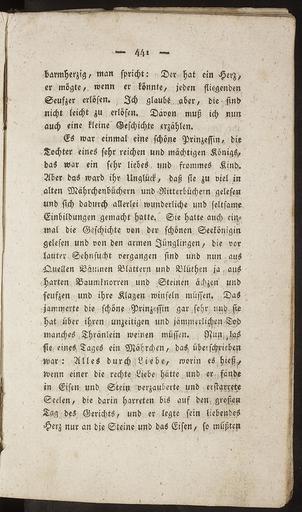 — 441 —
barmherzig, man spricht: Der hat ein Herz,
er mögte, wenn er könnte, jeden fliegenden
Seufzer erlösen. Ich glaube aber, die sind
nicht leicht zu erlösen. Davon muß ich nun
auch eine kleine Geschichte erzählen.
Es war einmal eine schöne Prinzessin, die
Tochter eines sehr reichen und mächtigen Königs,
das war ein sehr liebes und frommes Kind.
Aber das ward ihr Unglück, daß sie zu viel in
alten Mährchenbüchern und Ritterbüchern gelesen
und sich dadurch allerlei wunderliche und seltsame
Einbildungen gemacht hatte. Sie hatte auch ein-
mal die Geschichte von der schönen Seekönigin
gelesen und von den armen Jünglingen, die vor
lauter Sehnsucht vergangen sind und nun aus
Quellen Bäumen Blättern und Blüthen ja aus
harten Baumknorren und Steinen ächzen und
seufzen und ihre Klagen winseln müssen. Das
jammerte die schöne Prinzessin gar sehr und sie
hat über ihren unzeitigen und jämmerlichen Tod
manches Thränlein weinen müssen. Nun las
sie eines Tages ein Mährchen, das überschrieben
war: Alles durch Liebe, worin es hieß,
wenn einer die rechte Liebe hätte und er fände
in Eisen und Stein verzauberte und erstarrete
Seelen, die darin harreten bis auf den großen
Tag des Gerichts, und er legte sein liebendes
Herz nur an die Steine und das Eisen, so müßten